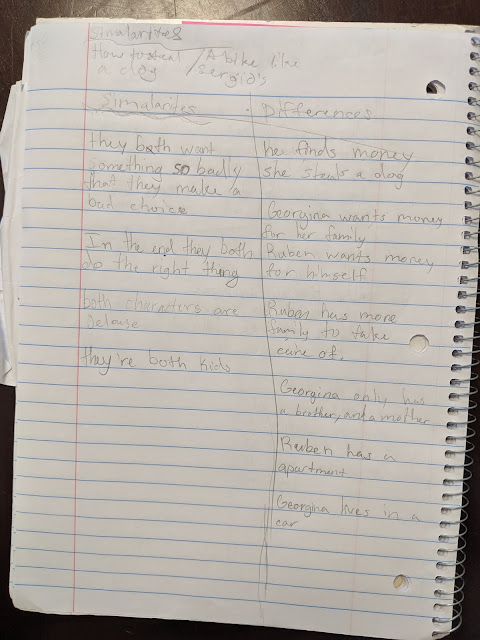 Simalarites
How to steal / A bike like
a dog sergio's
Simalarites
they both want
something so badly
that they make a
bad choice
In the end they both
do the right thing
both characters are
Jelouse
they're both kids
Differences
he finds money
she steals a dog
Georgina wants money
for her family
Ruben wants money
for himself
Ruben has more
family to take
care of.
Georgina only has
a brother, and a mother
Ruben has a
apartment
Georgina lives in a
car